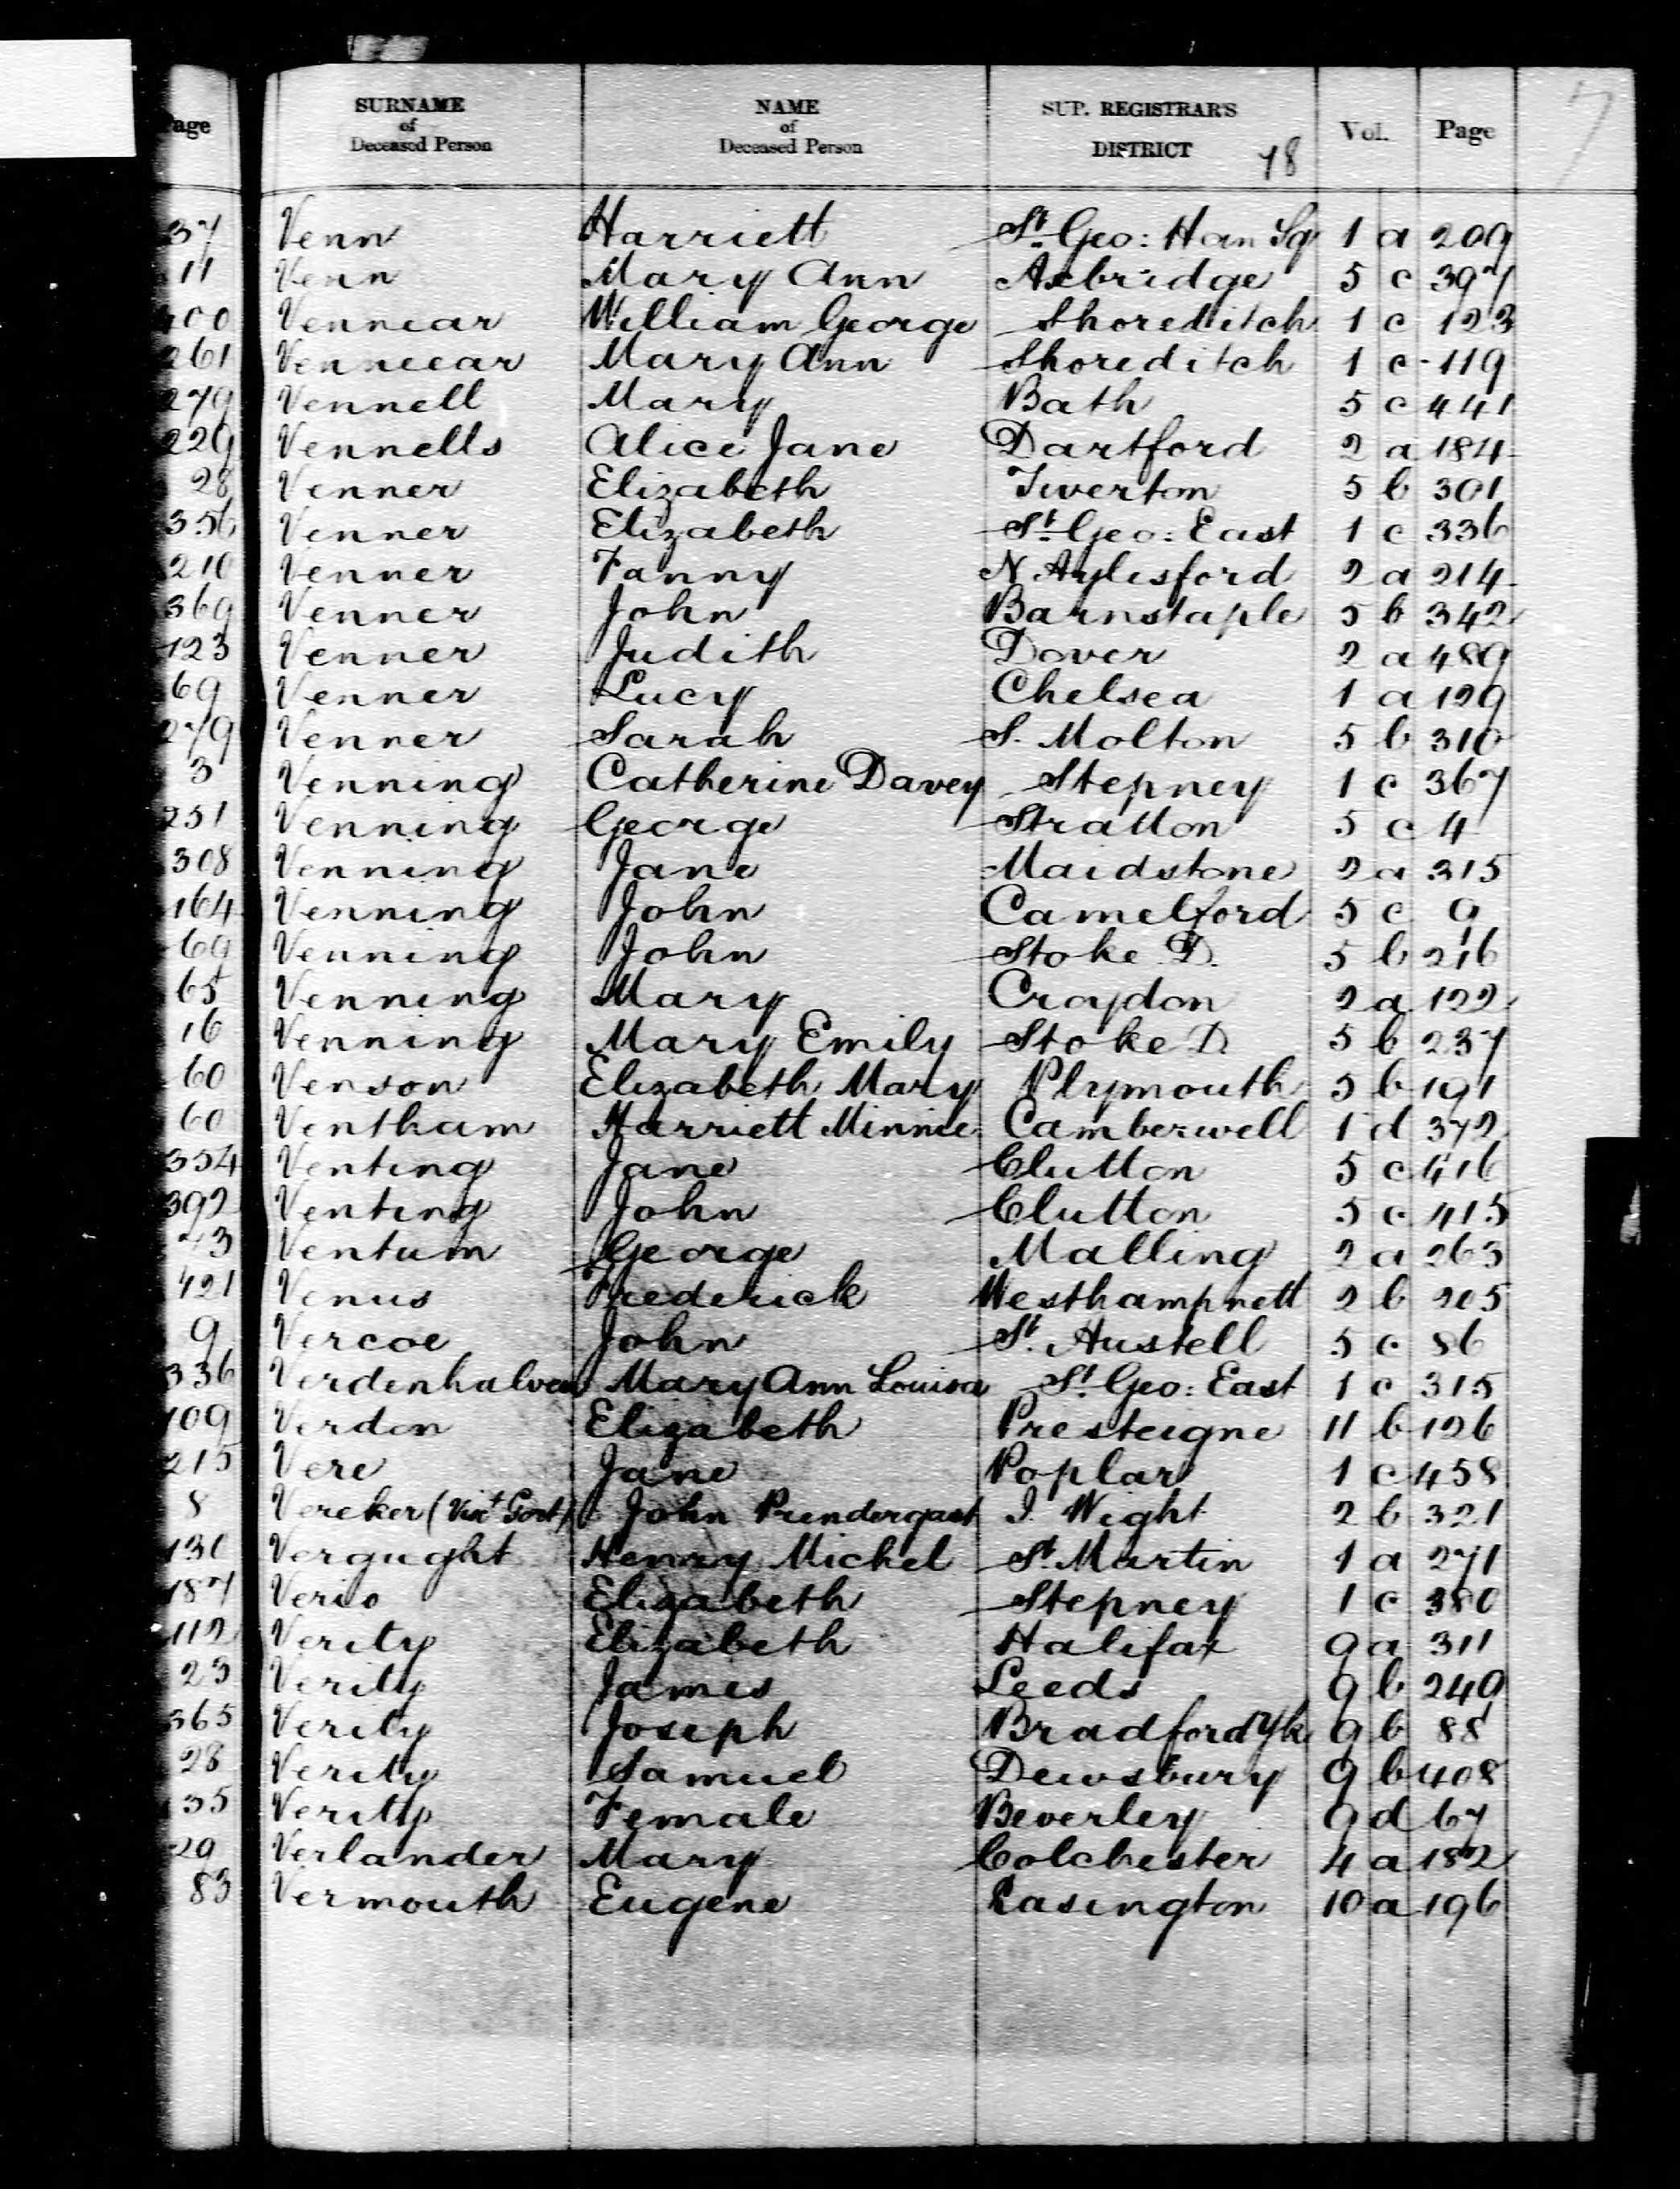 Page
SURNAME of Deceased Person NAME of Deceased Person SUP. REGISTRAR'S DISTRICT 78 Vol. Page
37 Venn Harriett St. Geo: Han Sq 1 a 209
11 Venn Mary Ann Axbridge 5 c 397
400 Vennear William George Shoreditch 1 c 123
261 Venneear Mary Ann Shoreditch 1 c 119
279 Vennell Mary Bath 5 c 441
229 Vennells Alice Jane Dartford 2 a 184
28 Venner Elizabeth Tiverton 5 b 301
356 Venner Elizabeth St. Geo: East 1 c 336
210 Venner Fanny N. Aylesford 2 a 214
369 Venner John Barnstaple 5 b 342
123 Venner Judith Dover 2 a 489
69 Venner Lucy Chelsea 1 a 129
279 Venner Sarah S. Molton 5 b 310
3 Venning Catherine Davey Stepney 1 c 367
251 Venning George Stratton 5 c 4
308 Venning Jane Maidstone 2 a 315
164 Venning John Camelford 5 c 9
69 Venning John Stoke D. 5 b 216
65 Venning Mary Croydon 2 a 122
16 Venning Mary Emily Stoke D. 5 b 237
60 Venson Elizabeth Mary Plymouth 5 b 191
60 Ventham Harriett Minnie Camberwell 1 d 372
354 Venting Jane Clutton 5 c 416
392 Venting John Clutton 5 c 415
43 Ventum George Malling 2 a 263
421 Venus Frederick Westhampnett 2 b 205
9 Vercoe John St. Austell 5 c 86
336 Verdenhalven Mary Ann Louisa St. Geo: East 1 c 315
109 Verdon Elizabeth Presteigne 11 b 126
215 Vere Jane Poplar 1 c 458
8 Vereker (Visct Gort) John Prendergast I. Wight 2 b 321
130 Vergught Henry Michel St. Martin 1 a 271
187 Verio Elizabeth Stepney 1 c 380
112 Verity Elizabeth Halifax 9 a 311
23 Verity James Leeds 9 b 249
365 Verity Joseph Bradford Yk 9 b 88
28 Verity Samuel Dewsbury 9 b 408
35 Verity Female Beverley 9 d 67
29 Verlander Mary Colchester 4 a 182
83 Vermouth Eugene Easington 10 a 196